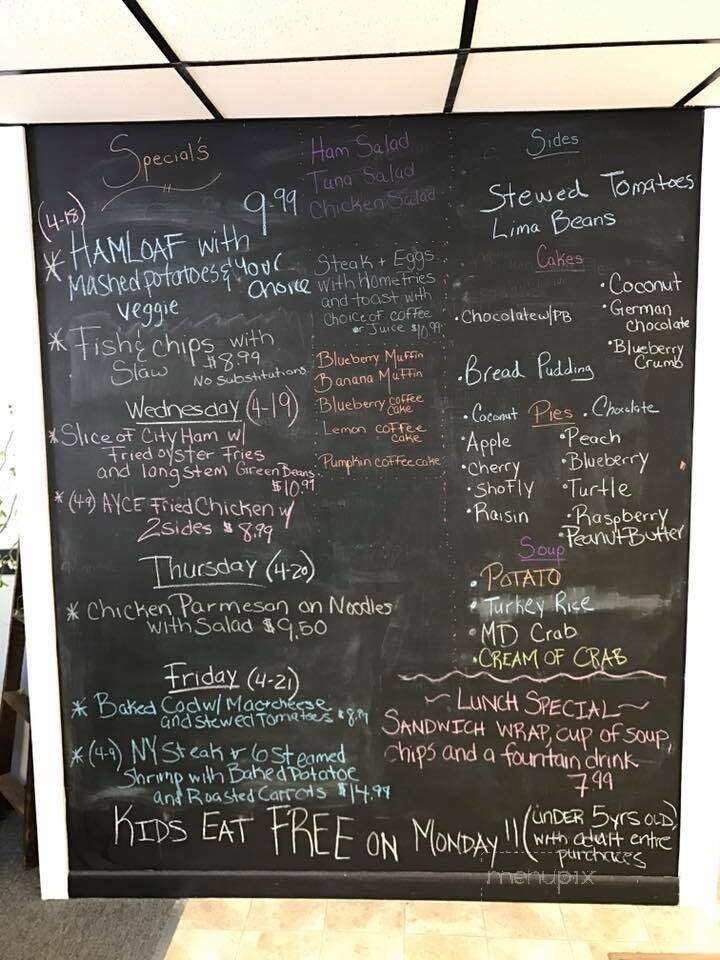 Special's
(4-18)
9.99
* HAMLOAF with
Mashed potatoes & your
choice
veggie
* Fish & chips with
Slaw $8.99
No Substitutions
Wednesday (4-19)
* Slice of City Ham w/
Fried oyster Fries
and longstem Green Beans
$10.99
* (4-9) AYCE Fried Chicken w/
2 sides $8.99
Thursday (4-20)
* Chicken Parmeson on Noodles
with Salad $9.50
Friday (4-21)
* Baked Cod w/ Mac & cheese
and stewed Tomatoes $8.99
* (4-9) NY Steak & 6 Steamed
Shrimp with Baked Potatoe
and Roasted Carrots $14.99
Ham Salad
Tuna Salad
Chicken Salad
Steak + Eggs
with Homefries
and toast with
choice of coffee
or Juice $10.99
Blueberry Muffin
Banana Muffin
Blueberry coffee
cake
Lemon coffee
cake
Pumpkin coffee cake
Sides
Stewed Tomatoes
Lima Beans
Cakes
• Coconut
• German
chocolate
• Chocolate w/PB
• Blueberry
Crumb
• Bread Pudding
Pies
• Coconut
• Chocolate
• Apple
• Peach
• cherry
• Blueberry
• Shofly
• Turtle
• Raisin
• Raspberry
• Peanut Butter
Soup
• POTATO
• Turkey Rice
• MD Crab
• CREAM OF CRAB
~ LUNCH SPECIAL ~
SANDWICH WRAP, cup of soup,
chips and a fountain drink
7.99
KIDS EAT FREE ON MONDAY!! (UNDER 5yrs OLD)
with adult entre
purchaces
menupix